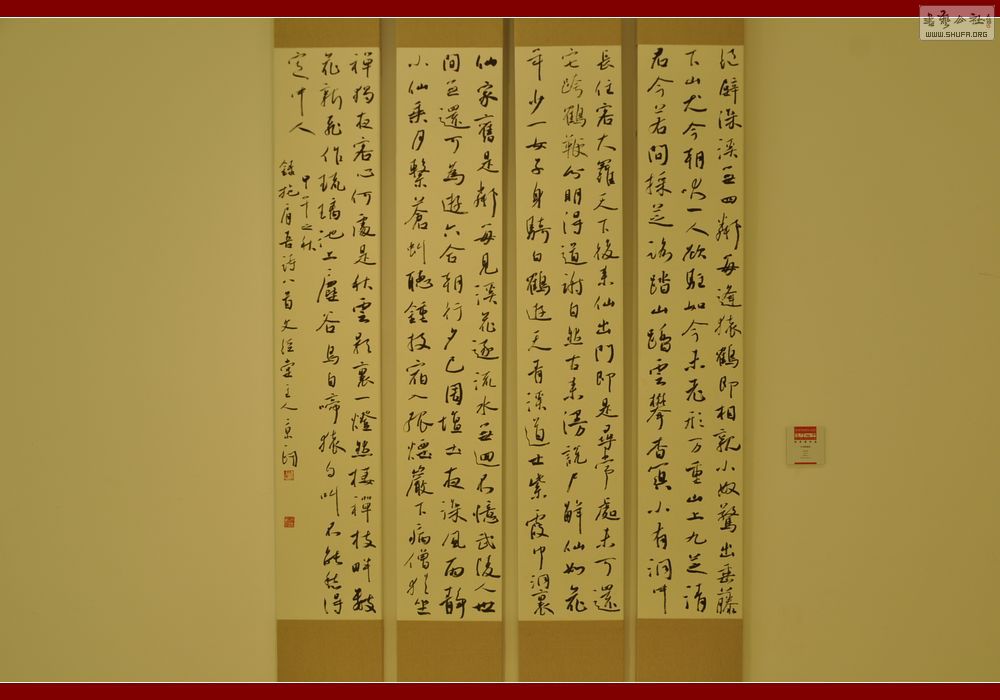 絕壁深溪無四鄰每逢猿鶴即相親小奴驚出垂藤
下山犬今朝吠一人欲駐如今未老形万重山上九芝清
君今若問採芝路踏山蹋雲攀杳冥小有洞中
長住客大羅天下後來仙出門即是尋常處未可還
它跨鶴鞭心明得道謝自然古來漫說尸解仙如花
年少一女子身騎白鶴遊天有深道士紫霞巾洞裏
仙家舊是鄰每見溪花逐流水無迴不憶武陵人世
間無還可為遊六合朝行夕已周壇上夜深風雨靜
小仙乘月繫蒼虬聽鍾投宿入孤煙巖下病僧猶坐
禪獨夜客心何處是秋雲影裏一燈然棲禪枝畔數
花新飛作琉璃池上塵谷鳥自啼猿自叫不能愁得
定中人
甲午之秋
錄施肩吾詩八首文經堂主人
書藝公社
WWW.SHUFA.ORG